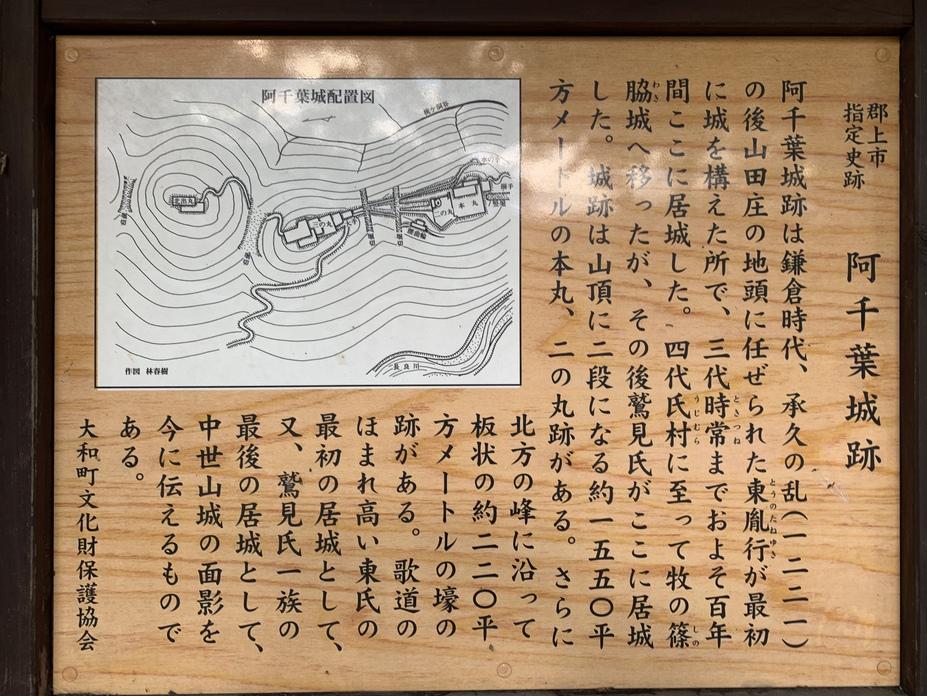 郡上市
指定史跡
阿千葉城跡
阿千葉城跡は鎌倉時代、承久の乱(一二二一)
の後山田庄の地頭に任ぜられた東胤行が最初
とうのたねゆき
に城を構えた所で、三代時常までおよそ百年
ときつね
間ここに居城した。四代氏村に至って牧の篠
うじむら
しの
脇城へ移ったが、その後鷲見氏がここに居城
わき
した。城跡は山頂に二段になる約一五五〇平
方メートルの本丸、二の丸跡がある。さらに
北方の峰に沿って
板状の約二二〇平
方メートルの壕の
跡がある。歌道の
ほまれ高い東氏の
最初の居城として、
又、鷲見氏一族の
最後の居城として、
中世山城の面影を
今に伝えるもので
ある。
大和町文化財保護協会
阿千葉城配置図
北出丸
三の丸
二の丸
本丸
腰曲輪
長良川
作図 林春樹